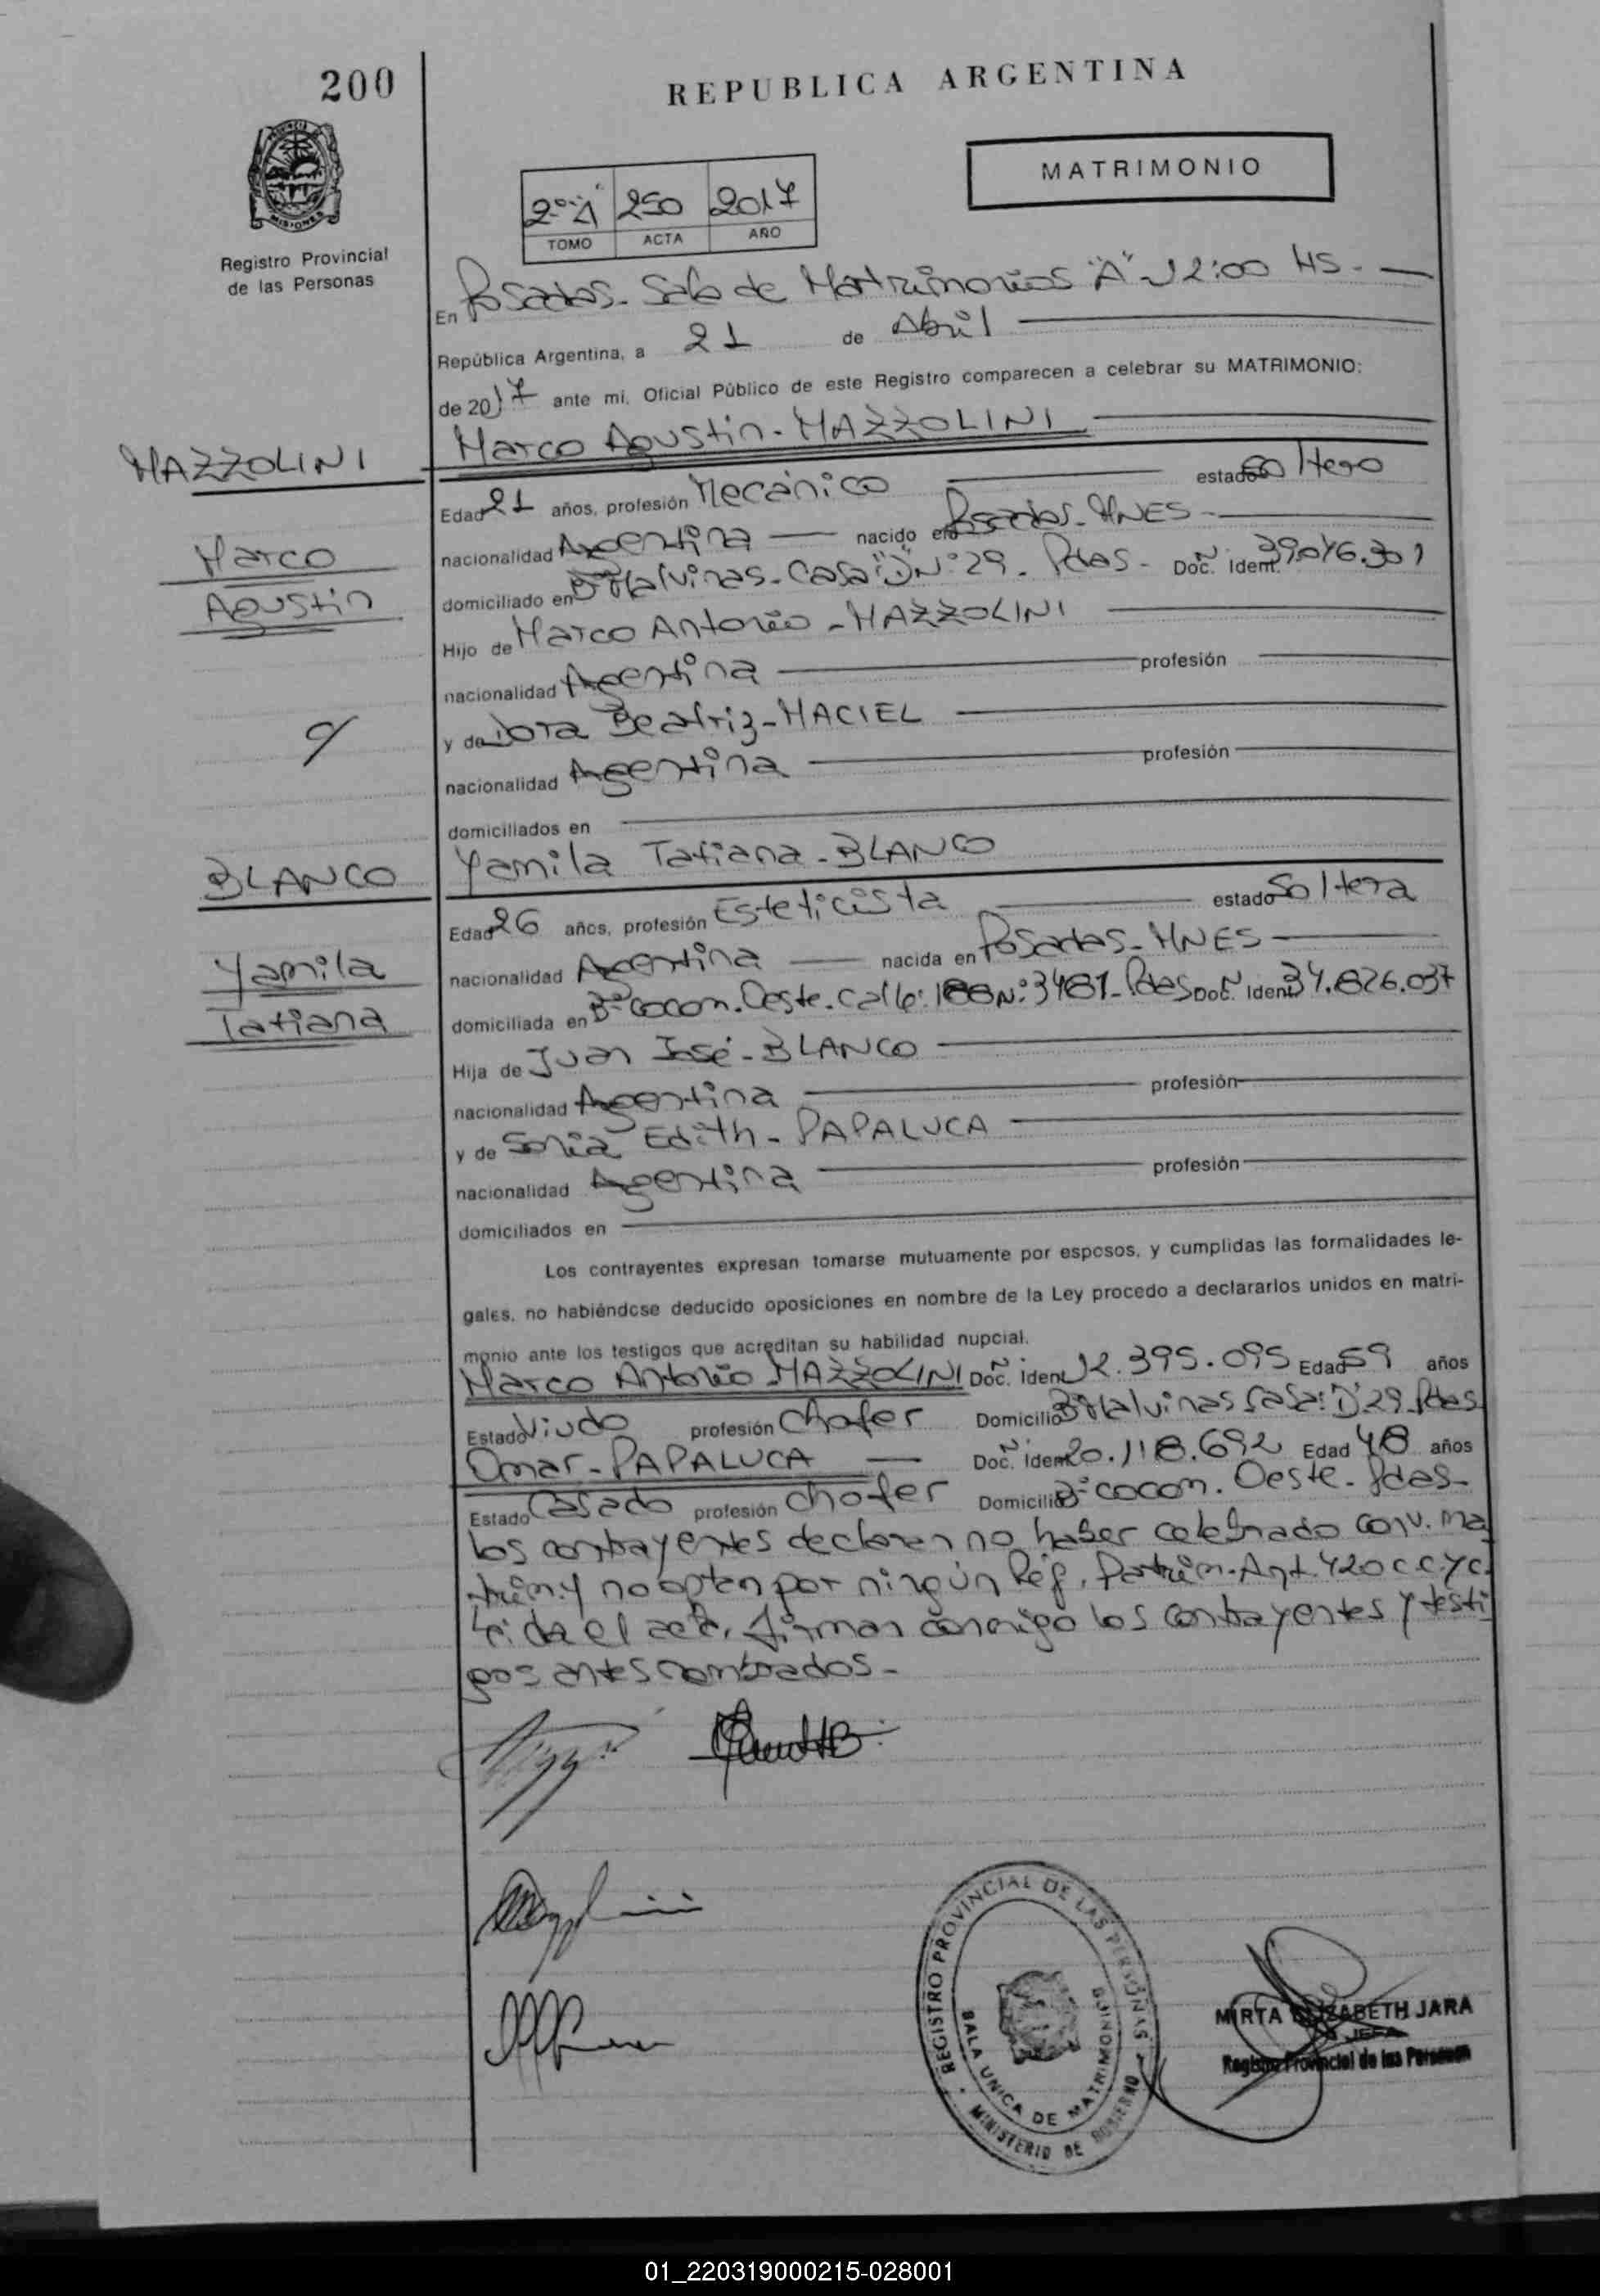 200
REPUBLICA ARGENTINA
MATRIMONIO
MISIONES
Registro Provincial
de las Personas
2º A 250 2017
TOMO ACTA AÑO
En Posadas - Sala de Matrimonios "A" - 12:00 HS. -
República Argentina, a 21 de Abril
de 2017 ante mi, Oficial Público de este Registro comparecen a celebrar su MATRIMONIO:
Marco Agustin - MAZZOLINI
MAZZOLINI
Edad 21 años, profesión Mecánico estado Soltero
Marco
nacionalidad Argentina nacido en Posadas - MNES -
Agustin
domiciliado en Bº Malvinas - Casa "D" Nº 29 - Pdas - Doc. Ident. 39.076.301
Hijo de Marco Antonio - MAZZOLINI
nacionalidad Argentina profesión
y de Dora Beatriz - MACIEL
c/
nacionalidad Argentina profesión
domiciliados en
Yamila Tatiana - BLANCO
BLANCO
Edad 26 años, profesión Esteticista estado Soltera
Yamila
nacionalidad Argentina nacida en Posadas - MNES
Tatiana
domiciliada en Bº Cocom. Oeste. Calle: 188 Nº 3481 - Pdas Doc. Ident. 34.826.037
Hija de Juan José - BLANCO
nacionalidad Argentina profesión
y de Sonia Edith - PAPALUCA
nacionalidad Argentina profesión
domiciliados en
Los contrayentes expresan tomarse mutuamente por esposos, y cumplidas las formalidades le-
gales, no habiéndose deducido oposiciones en nombre de la Ley procedo a declararlos unidos en matri-
monio ante los testigos que acreditan su habilidad nupcial.
Marco Antonio MAZZOLINI Doc. Ident 12.395.095 Edad 59 años
Estado Viudo profesión Chofer Domicilio Bº Malvinas Casa: "D" 29 Pdas
Omar - PAPALUCA Doc. Ident 20.118.692 Edad 48 años
Estado Casado profesión Chofer Domicilio Bº Cocom. Oeste - Pdas -
Los contrayentes declaran no haber celebrado conv. ma
trim. y no optan por ningún Rég. Patrim. Art. 420 C.C.yC.
Leida el acta, firman conmigo los contrayentes y testi
gos antes nombrados -
REGISTRO PROVINCIAL DE LAS PERSONAS
SALA UNICA DE MATRIMONIOS
MINISTERIO DE GOBIERNO
MIRTA ELIZABETH JARA
JEFA
Registro Provincial de las Personas
01_220319000215-028001